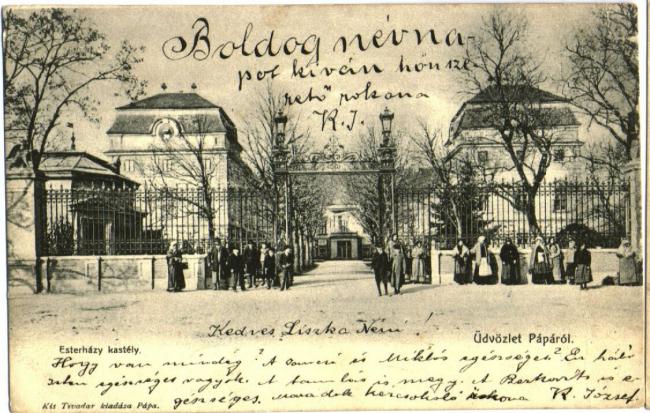 Boldog névna-
pot kíván hőn sze-
rető rokona
K. J.
Kedves Liszka Néni!
Esterházy kastély.
Üdvözlet Pápáról.
Hogy van mindég? A és Miklós egészséges? Én háló
Isten egészséges vagyok. A tanulás is megy. A Berkovits is e-
gészséges, maradok kézcsókoló rokona K. József.
Kis Tivadar kiadása Pápa.